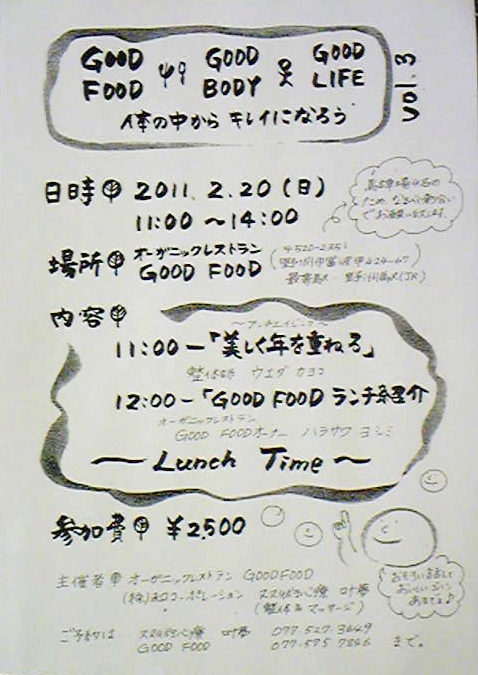 GOOD FOOD GOOD BODY GOOD LIFE
体の中から キレイになろう
vol.3
日時 2011.2.20(日)
11:00〜14:00
場所 オーガニックレストラン
GOOD FOOD
(〒520-2351
野洲市冨波甲424-67
最寄駅 野洲駅(JR)
内容
〜アンチエイジング〜
11:00ー「美しく年を重ねる」
整体師 ウエダ カヨコ
12:00ー「GOOD FOOD ランチ紹介
オーガニックレストラン
GOOD FOODオーナー ハラサワ ヨシミ
〜 Lunch Time 〜
参加費 ¥2,500
主催者 オーガニックレストラン GOOD FOOD
(整体&マッサージ)
おもろい話して
おいしいゴハン
ご予約は 077-527-3649
GOOD FOOD 077-575-7846 まで。